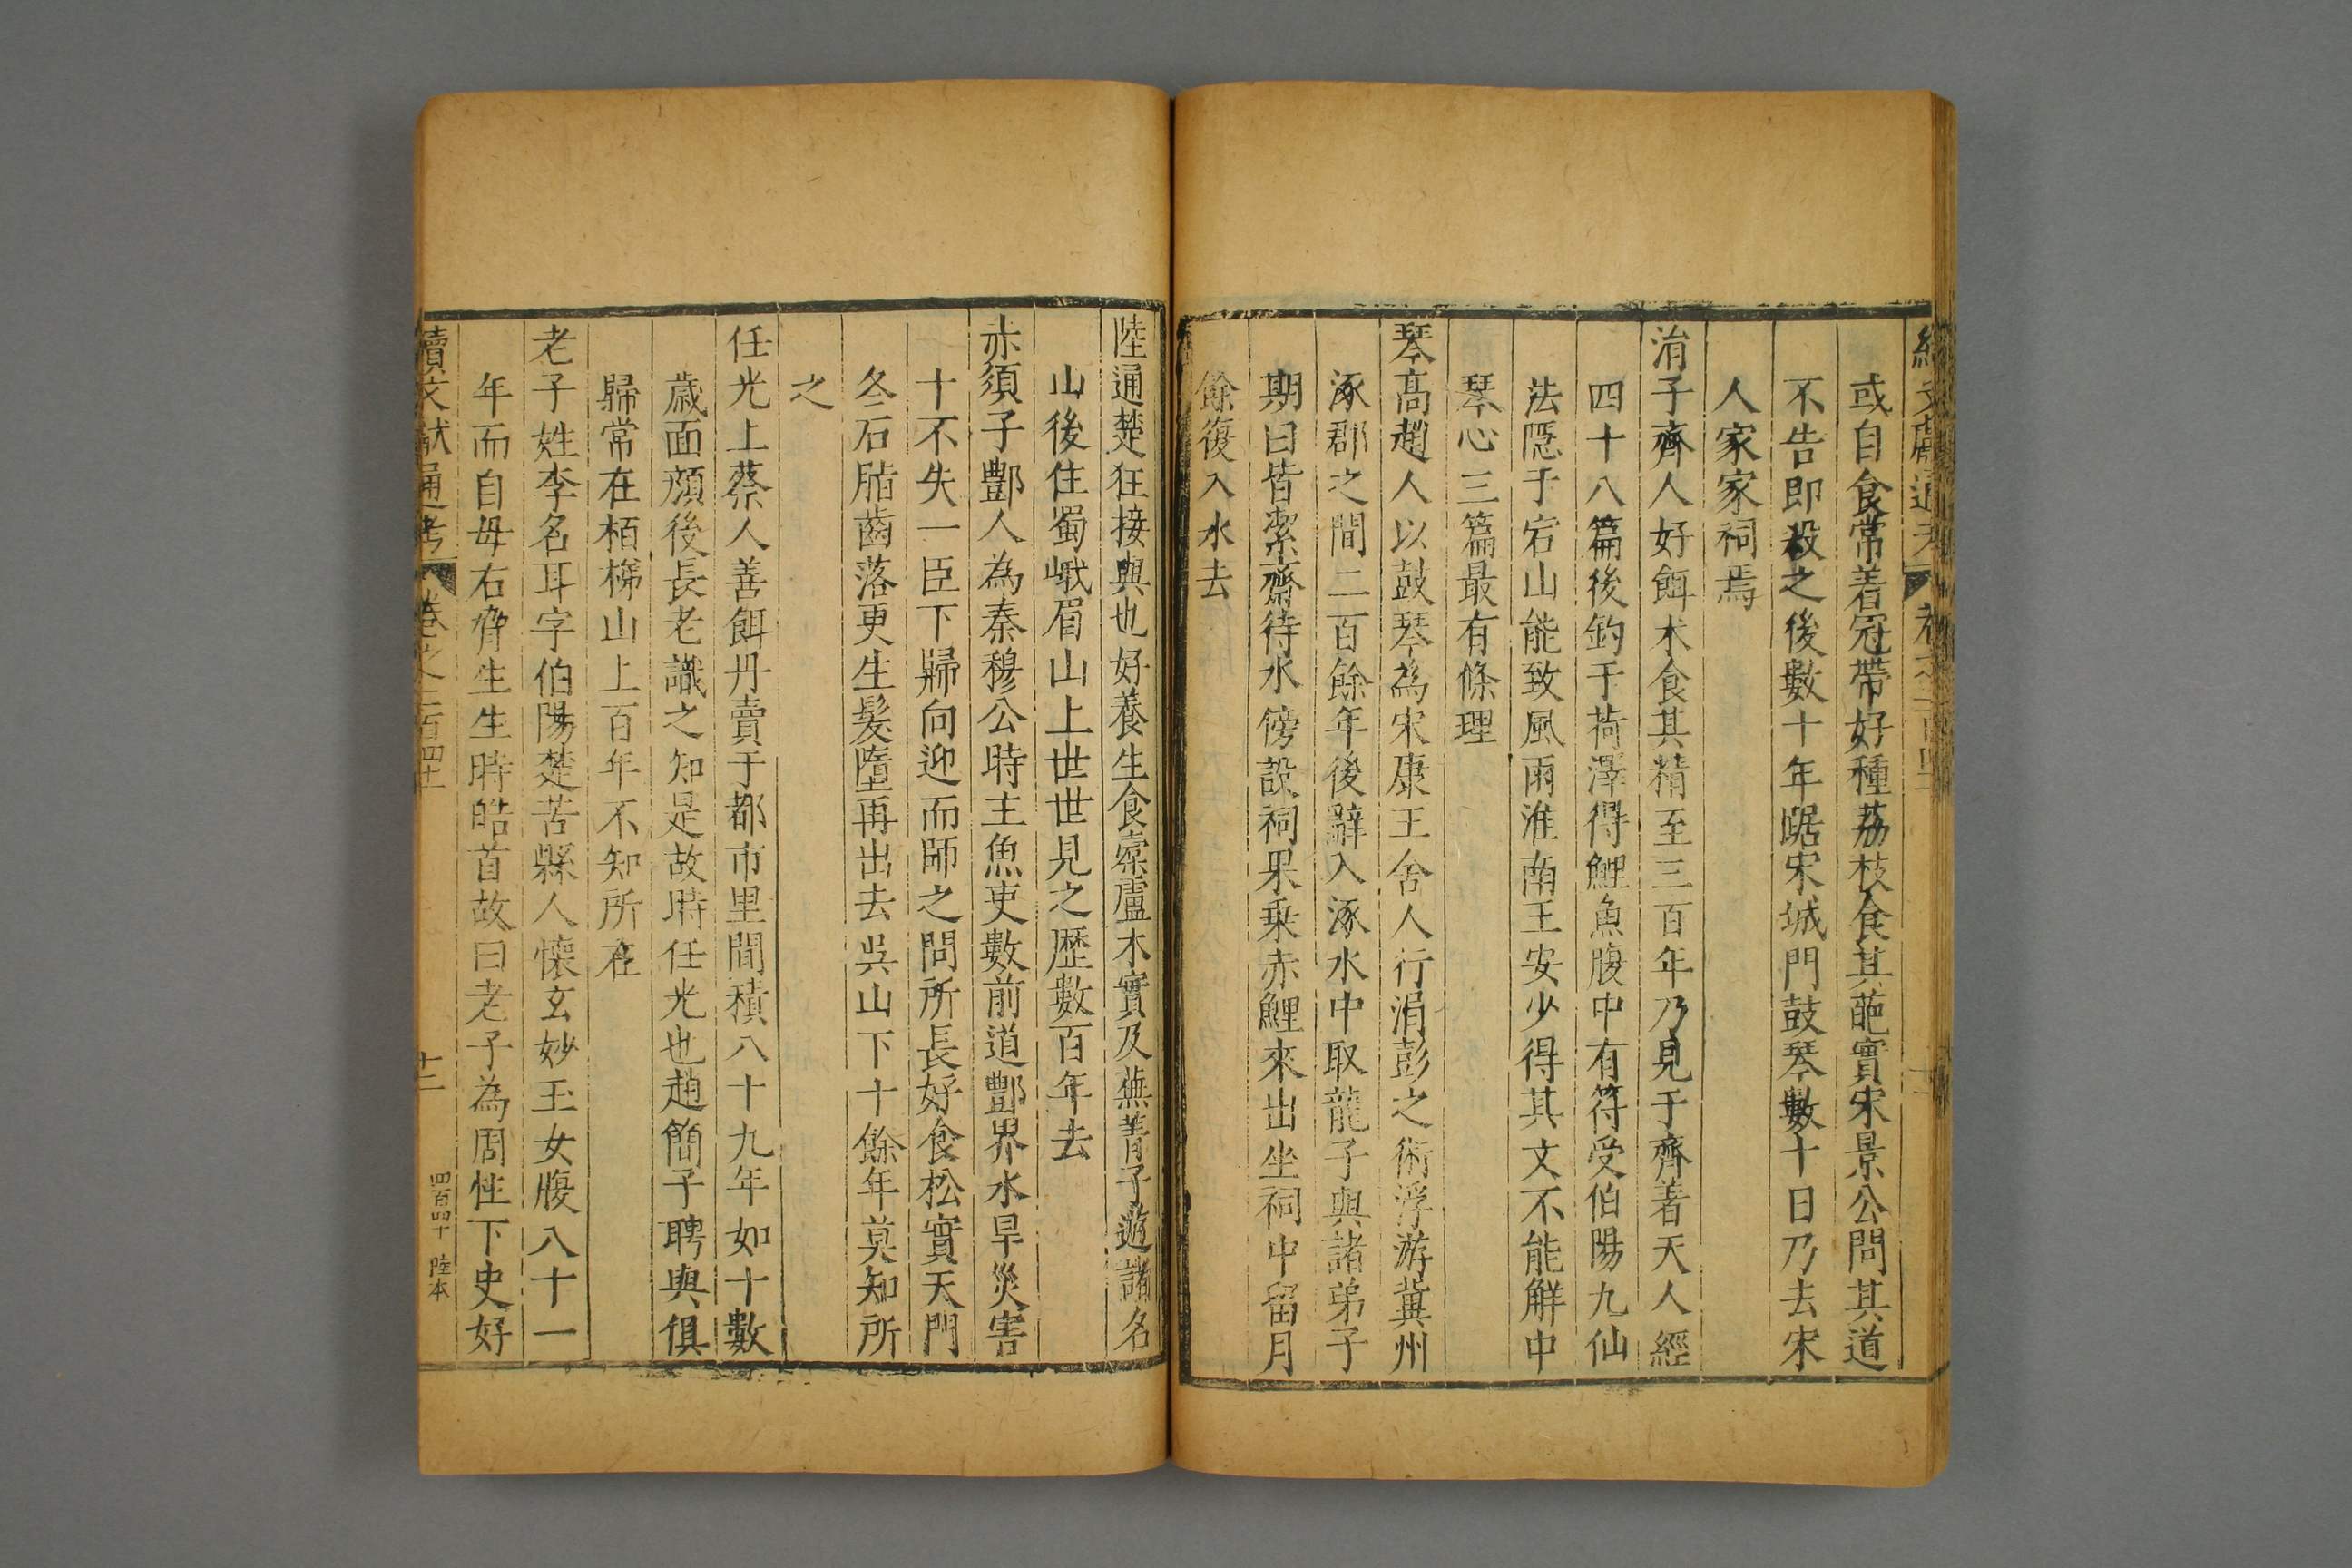 續文獻通考 卷之二百四十
或自食常着冠帶好種荔枝食其葩實宋景公問其道
不告即殺之後數十年踞宋城門鼓琴數十日乃去宋
人家家祠焉
涓子齊人好餌术食其精至三百年乃見于齊著天人經
四十八篇後釣于荷澤得鯉魚腹中有符受伯陽九仙
法隱于宕山能致風雨淮南王安少得其文不能解中
琴心三篇最有條理
琴高趙人以鼓琴為宋康王舍人行涓彭之術浮游冀州
涿郡之間二百餘年後辭入涿水中取龍子與諸弟子
期曰皆潔齋待水傍設祠果乗赤鯉來出坐祠中留月
餘復入水去
陸通楚狂接輿也好養生食槖盧木實及蕪菁子遊諸名
山後住蜀峨眉山上世世見之歴數百年去
赤須子酆人為秦穆公時主魚吏數前道酆界水旱災害
十不失一臣下歸向迎而師之問所長好食松實天門
冬石脂齒落更生髮墮再出去吳山下十餘年莫知所
之
任光上蔡人善餌丹賣于都市里間積八十九年如十數
歲面顔後長老識之知是故時任光也趙簡子聘與俱
歸常在栢梯山上百年不知所在
老子姓李名耳字伯陽楚苦縣人懷玄妙玉女腹八十一
年而自母右脅生生時皓首故曰老子為周柱下史好
續文獻通考 卷之二百四十 十二 四百四十 陸本